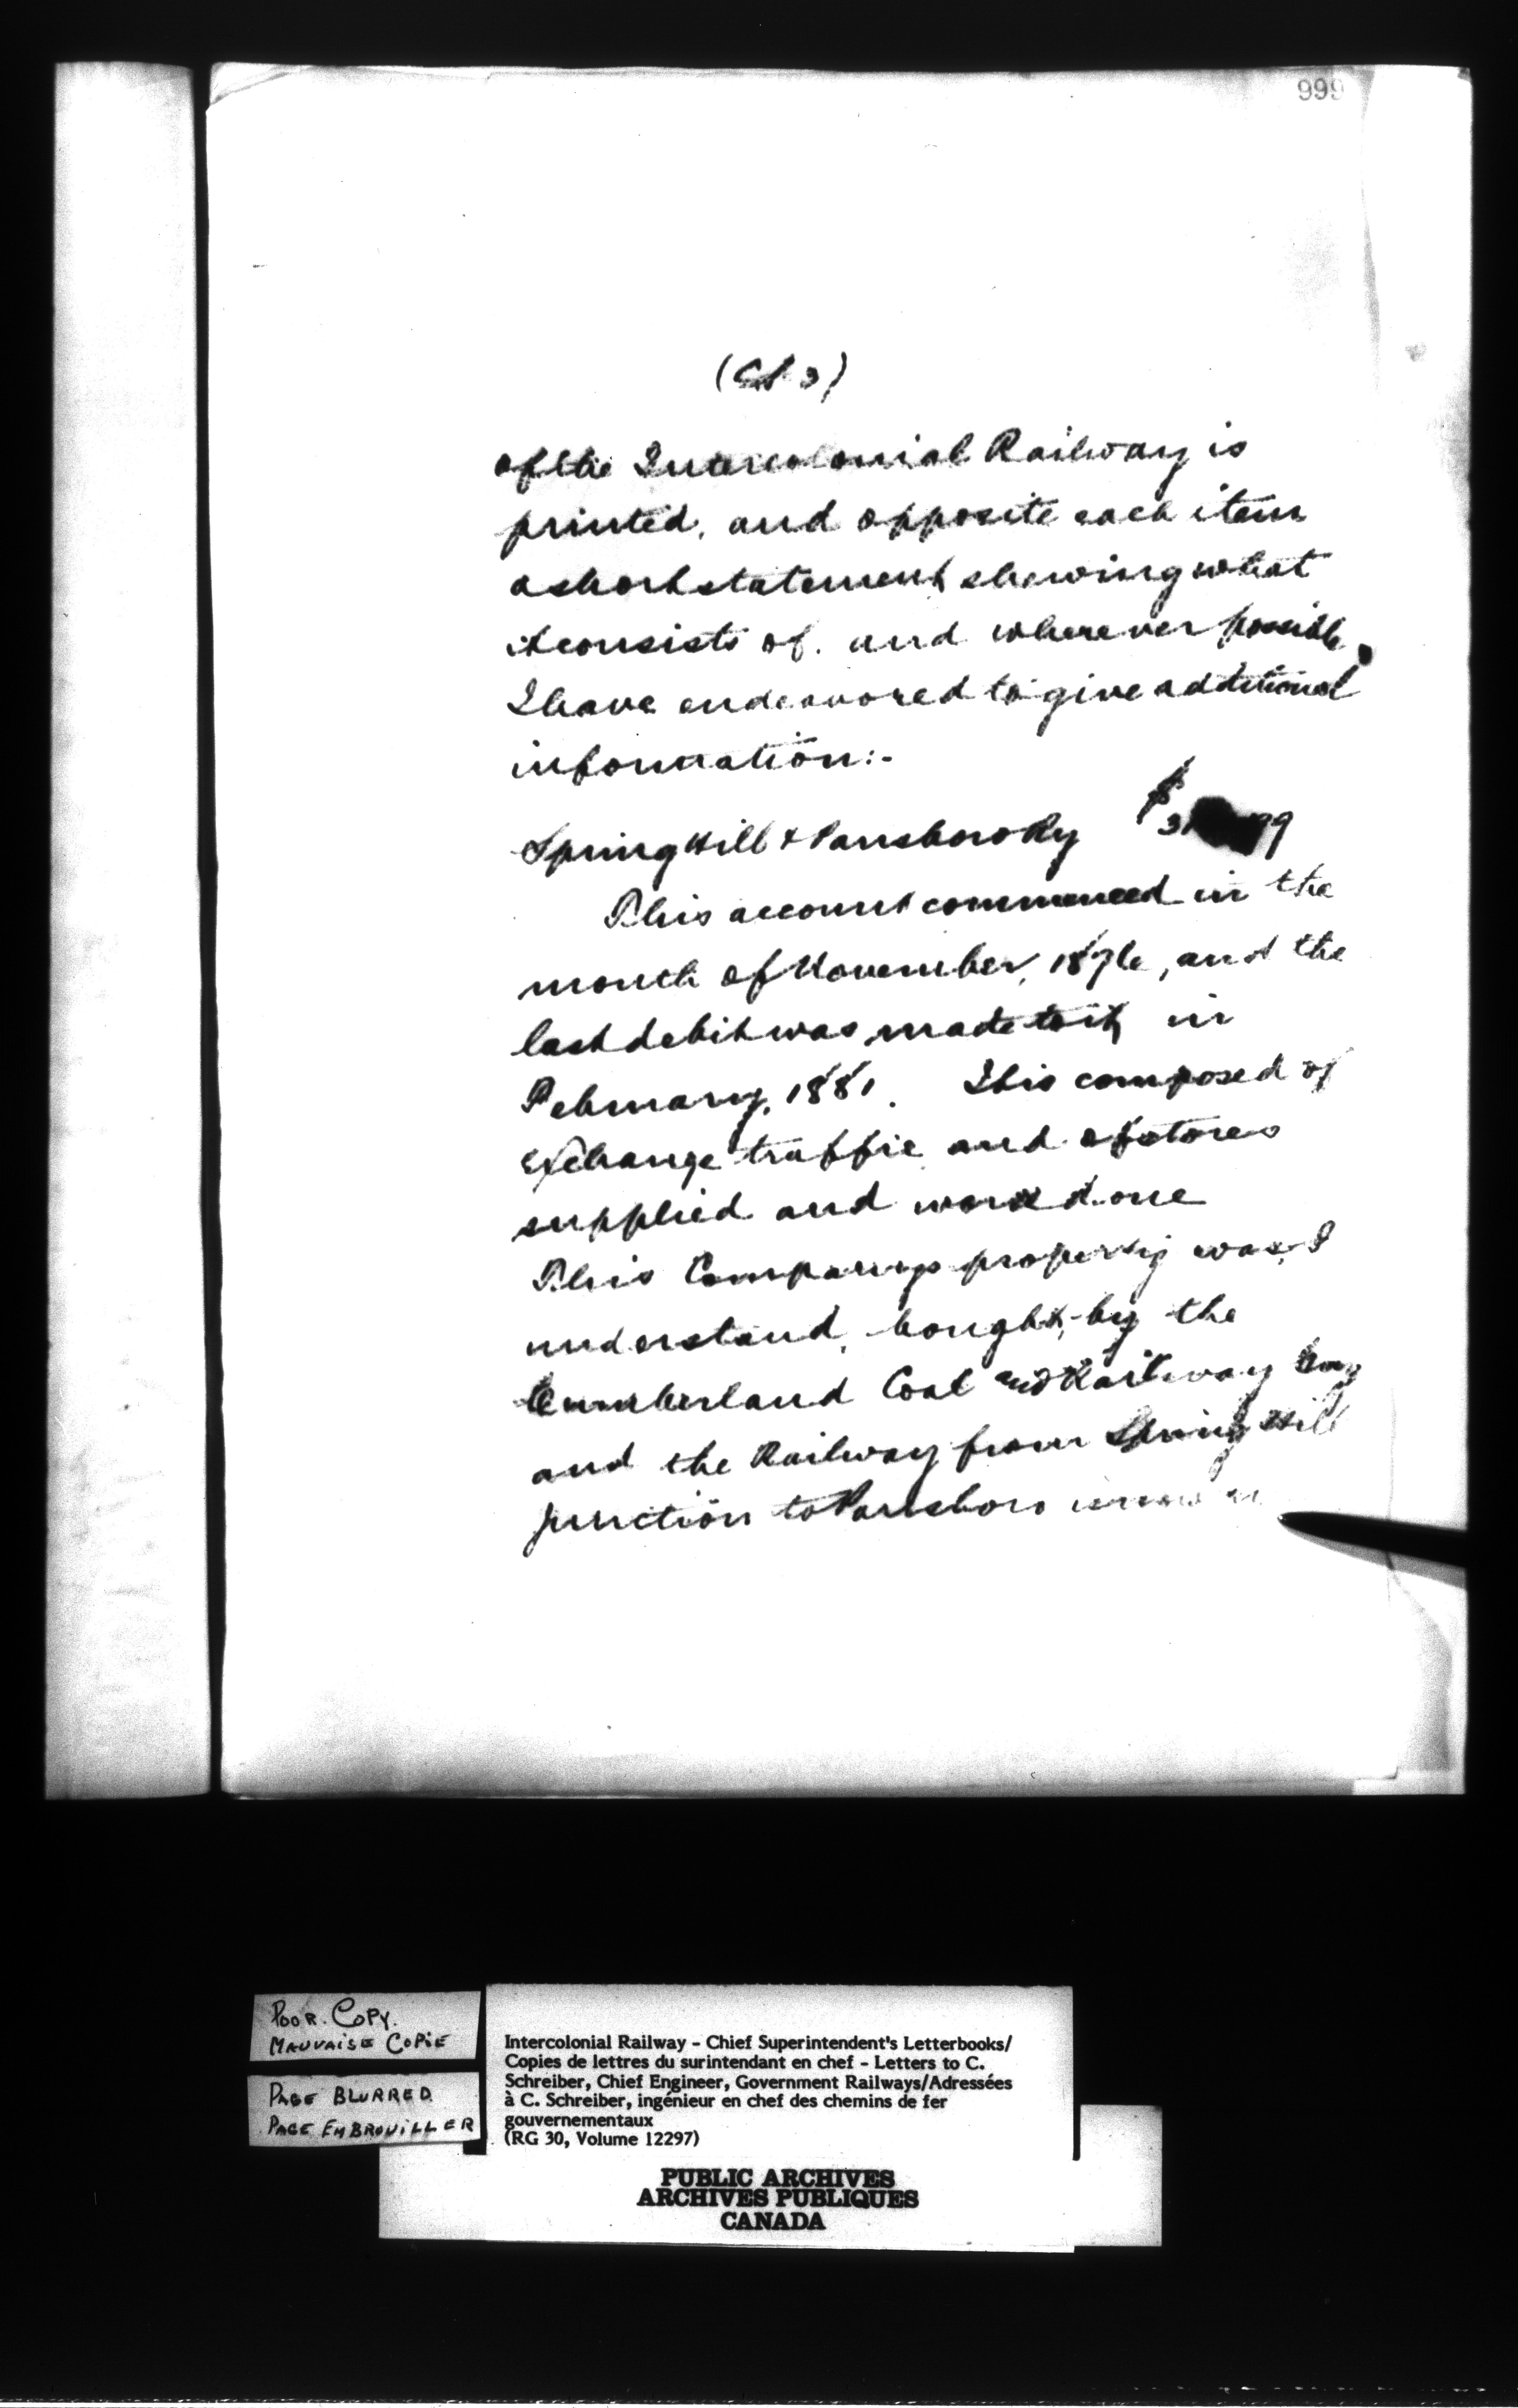 999
of the Intercolonial Railway is
printed, and opposite each item
a short statement shewing what
it consists of. and wherever possible,
I have endeavored to give additional
information:-
Spring Hill & Parrsboro Ry $
This account commenced in the
month of November, 1876, and the
last debit was made to it in
February, 1881. It is composed of
exchange traffic and of stores
supplied and work done
This Companys property was, I
understand, bought, by the
Cumberland Coal and Railway Coy
and the Railway from Spring Hill
junction to Parrsboro
POOR. COPY.
MAUVAISE COPIE
PAGE BLURRED
PAGE EMBROUILLER
Intercolonial Railway - Chief Superintendent's Letterbooks/
Copies de lettres du surintendant en chef - Letters to C.
Schreiber, Chief Engineer, Government Railways/Adressées
à C. Schreiber, ingénieur en chef des chemins de fer
gouvernementaux
(RG 30, Volume 12297)
PUBLIC ARCHIVES
ARCHIVES PUBLIQUES
CANADA